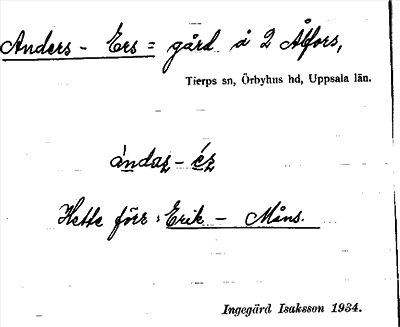 Anders - Ers = gård å 2 Ålfors,
Tierps sn, Örbyhus hd, Uppsala län.
ándaz - éz
Hette förr: Erik - Måns.
Ingegärd Isaksson 1934.